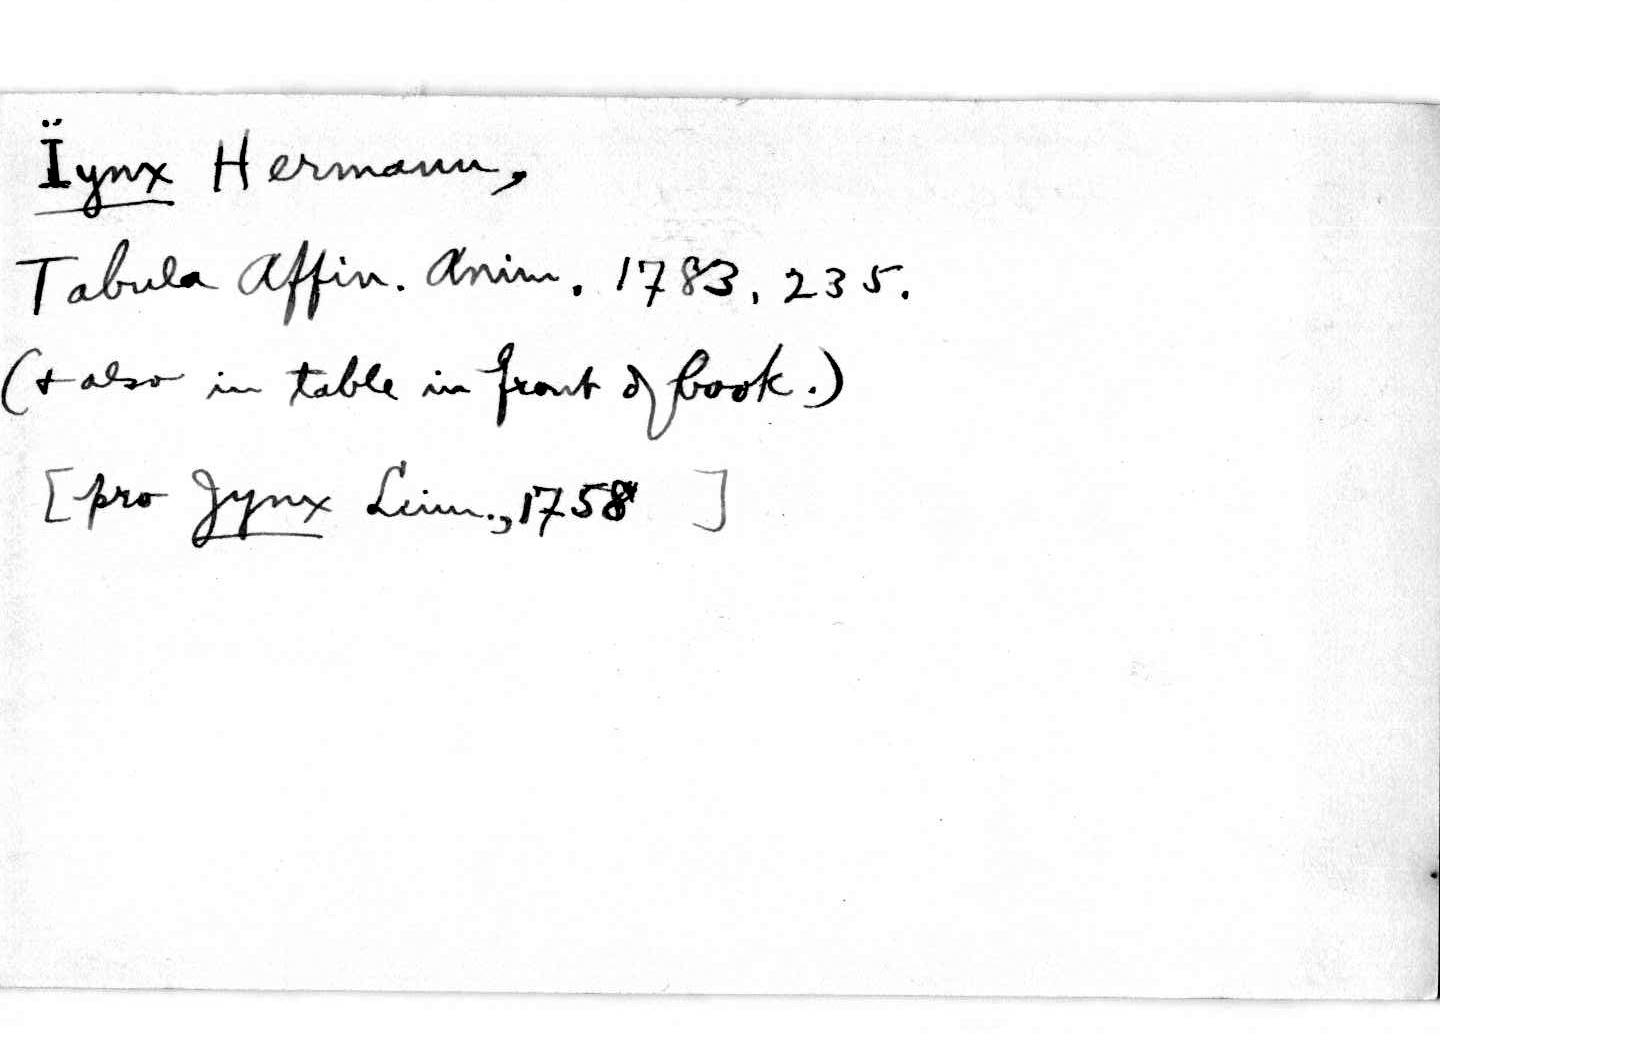 Ïynx Hermann,
Tabula Affin. Anim. 1783, 235.
(+ also in table in front of book.)
[pro Jynx Linn., 1758 ]